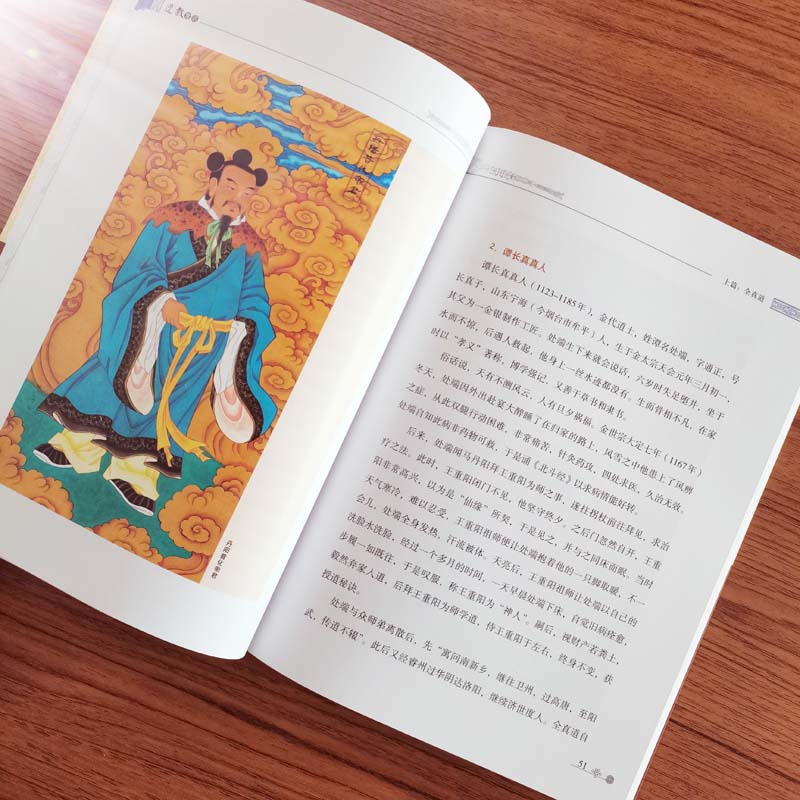 道教
丹阳普化帝君
上篇：全真道
2. 谭长真真人
谭长真真人（1123–1185年），金代道士，姓谭名处端，字通正，号
长真子，山东宁海（今烟台市牟平）人，生于金太宗天会元年三月初一，
其父为一金银制作工匠。处端生下来就会说话，六岁时失足堕井，坐于
水而不惊，后遇人救起，他身上一丝水迹都没有。生而骨相不凡，在家
时以“孝义”著称，博学强记，又善于草书和隶书。
俗话说，天有不测风云，人有旦夕祸福。金世宗大定七年（1167年）
冬天，处端因外出赴宴大醉睡了在归家的路上，风雪之中他患上了风痹
之症，从此双腿行动困难，非常痛苦，针灸药攻，四处求医，久治无效。
处端自知此病非药物可救，于是诵《北斗经》以求病情能好转。
后来，处端闻马丹阳拜王重阳为师之事，遂拄拐杖前往拜见，求治
疗之法。此时，王重阳闭门不见，他坚守终夕。之后门忽然自开，王重
阳非常高兴，以为是“仙缘”所契，于是见之，并与之同床而眠。当时
天气寒冷，难以忍受，王重阳祖师便让处端抱着他的一只脚取暖，不一
会儿，处端全身发热，汗流被体。天亮后，王重阳祖师让处端以自己的
洗脸水洗脸，经过一个多月的时间，一天早晨处端下床，自觉旧病痊愈，
步履一如既往，于是叹服，称王重阳为“神人”。嗣后，视财产若粪土，
毅然弃家人道，后拜王重阳为师学道，侍王重阳于左右，终身不变，获
授道秘诀。
处端与众师弟离散后，先“寓问南新乡，继往卫州，过高唐，至阳
武，传道不辍”。此后又经睿州过华阴达洛阳，继续济世度人。全真道自
51